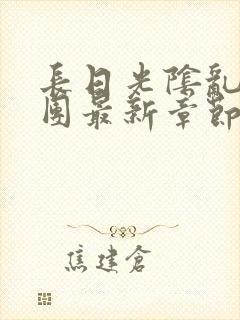 長日光陰亂
團最新章節
焦建倉